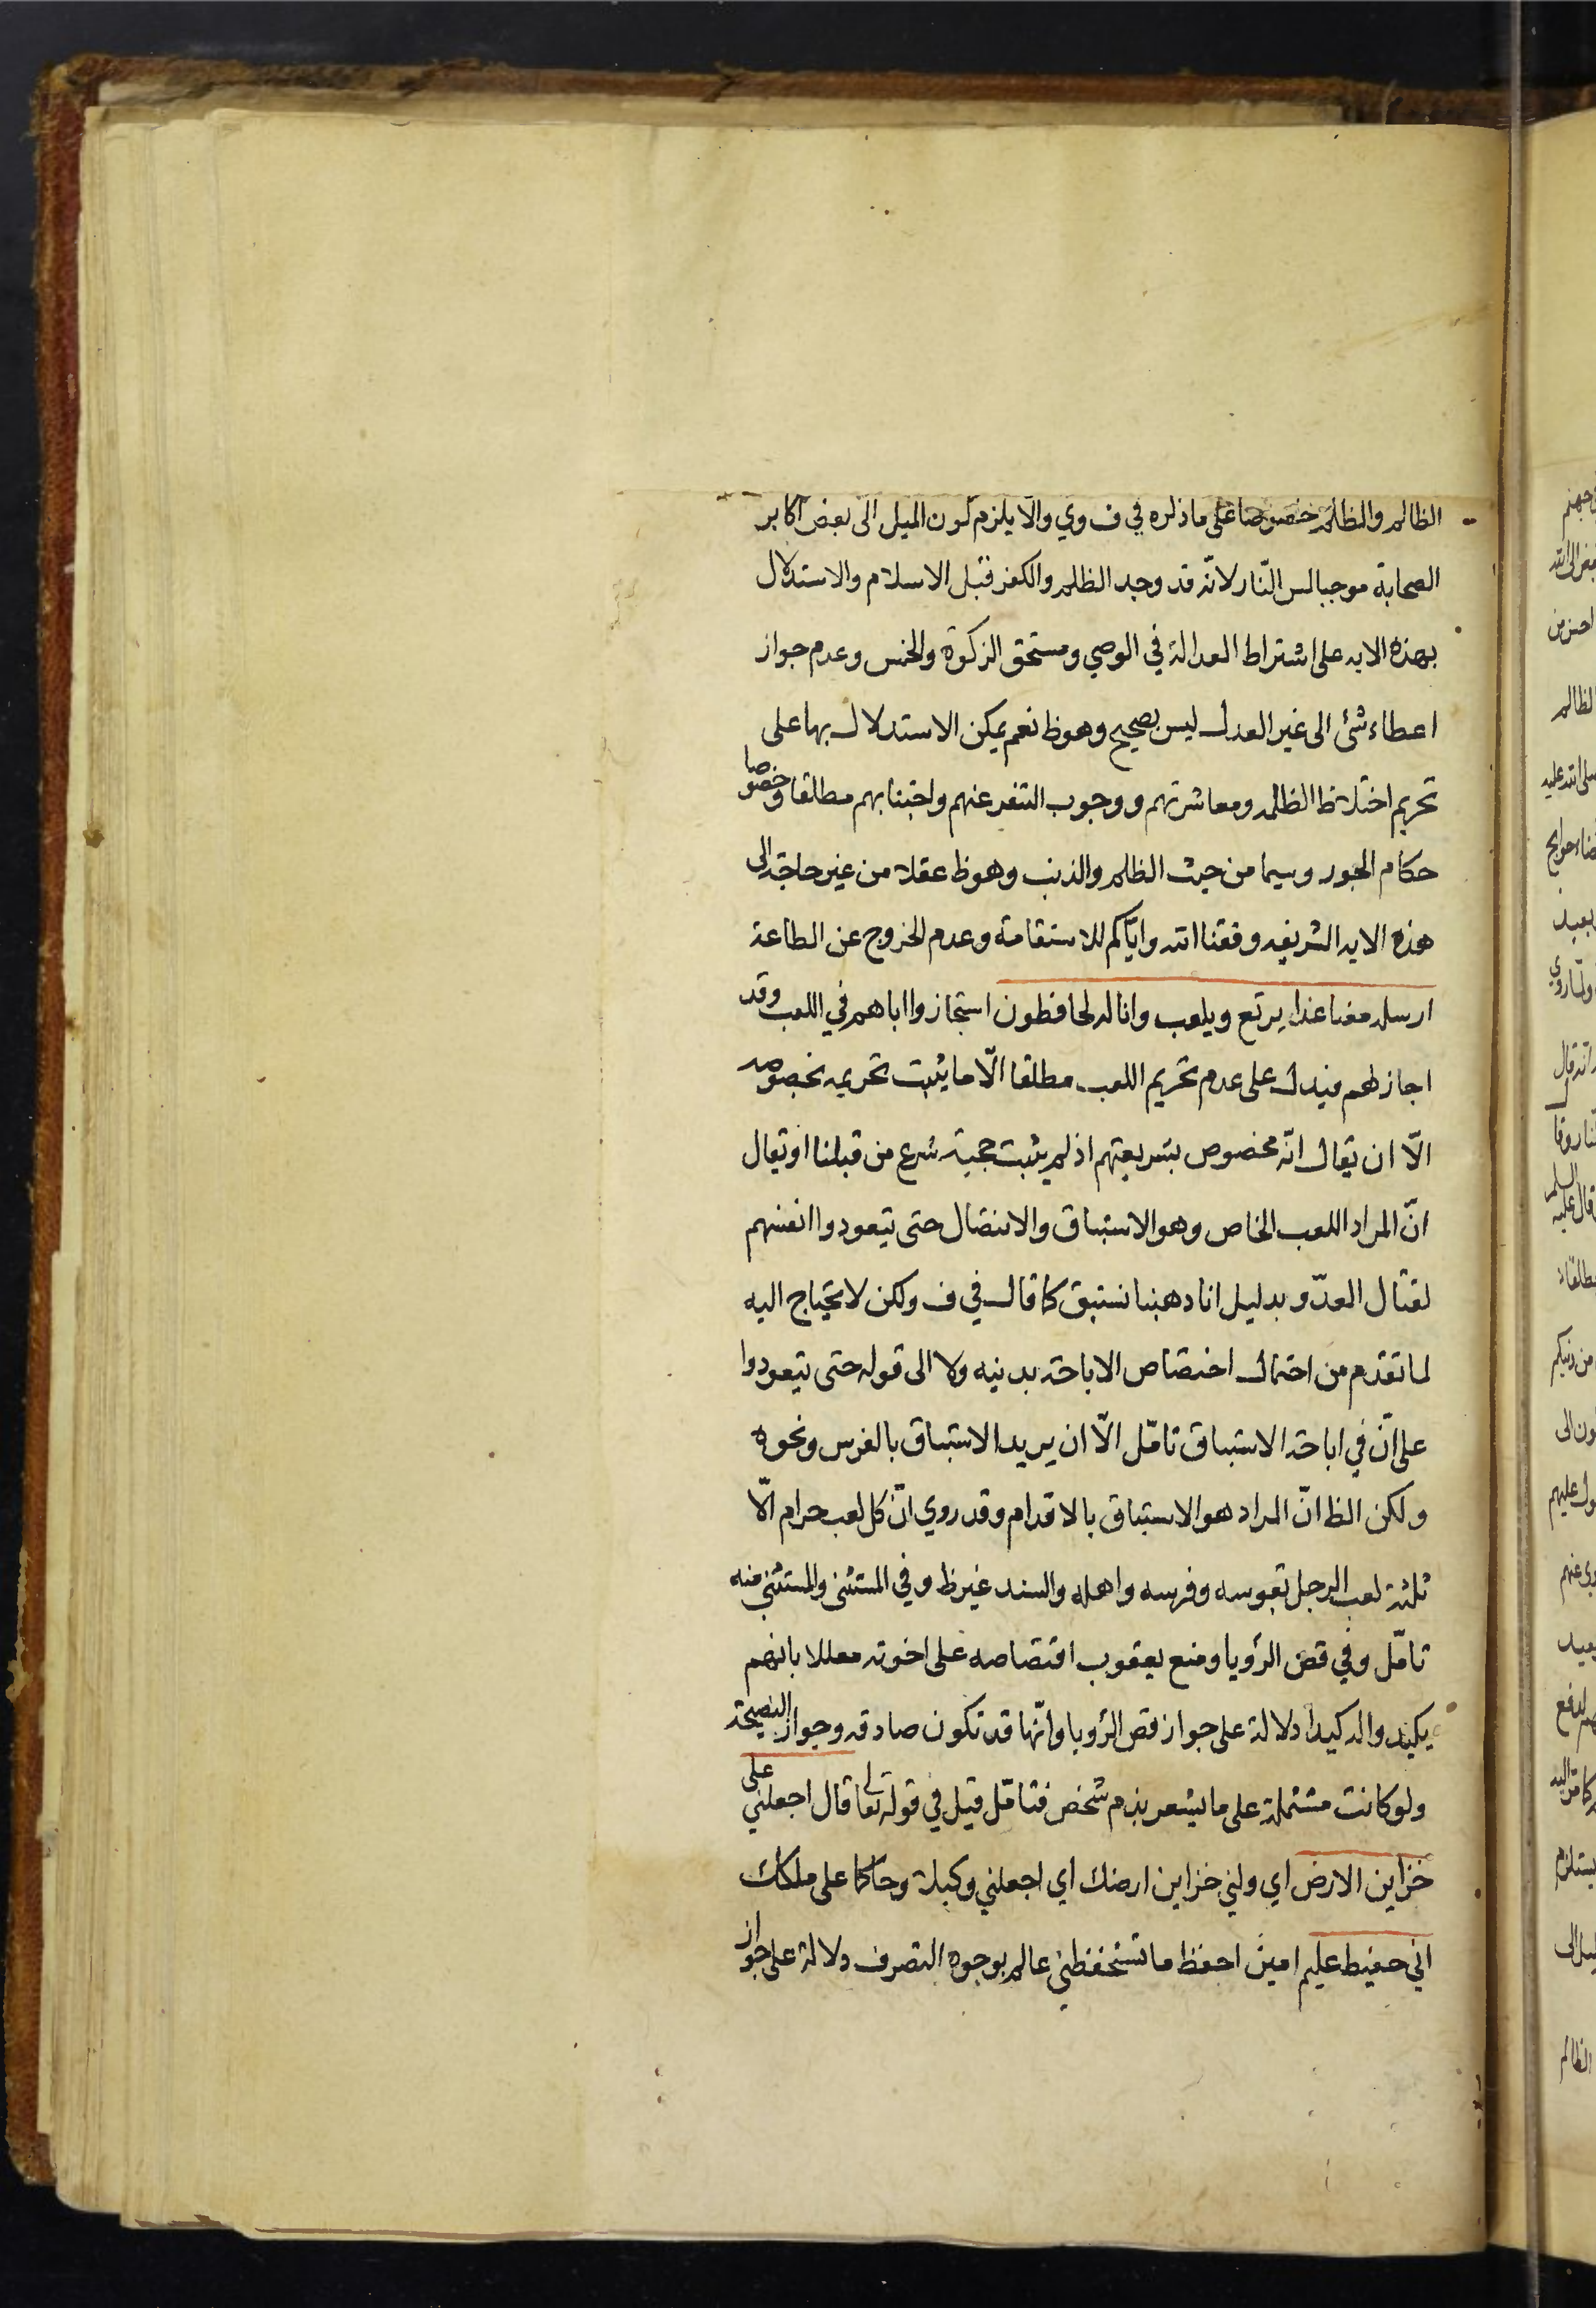 الظالم والظلم خصوصا على ما ذكره في ف وي والا يلزم كون الميل الى بعض اكابر
الصحابة موجبا لمس النّار لانّه قد وجد الظلم والكفر قبل الاسلام والاستدلال
بهذه الايه على اشتراط العدالة في الوصي ومستحق الزكوة والخمس وعدم جواز
اعطاء شئ الى غير العدل ليس بصحيح وهو ظ نعم يمكن الاستدلال بها على
تحريم اختلاط الظلمه ومعاشرتهم ووجوب التنفر عنهم واجتنابهم مطلقا وخصوصا
حكام الجور وسيما من حيث الظلم والذنب وهو ظ عقلا من غير حاجة الى
هذه الايه الشريفه وفقنا الله وايّاكم للاستقامة وعدم الخروج عن الطاعة
ارسله معنا غدا يرتع ويلعب وانا له لحافظون استجازوا اباهم في اللعب وقد
اجاز لهم فيدل على عدم تحريم اللعب مطلقا الّا ما يثبت تحريمه بخصوصه
الّا ان يقال انّه مخصوص بشريعتهم اذ لم يثبت حجية شرع من قبلنا او يقال
انّ المراد اللعب الخاص وهو الاستباق والانتضال حتى يتعودوا انفسهم
لقتال العدّو بدليل انا ذهبنا نستبق كما قال في ف ولكن لا يحتاج اليه
لما تقدم من احتمال اختصاص الاباحة بدينه ولا الى قوله حتى يتعودوا
على انّ في اباحة الاستباق تامّل الّا ان يريد الاستباق بالفرس ونحوه
ولكن الظ انّ المراد هو الاستباق بالاقدام وقد روي انّ كل لعب حرام الّا
ثلثة لعب الرجل بقوسه وفرسه واهله والسند غير ظ وفي المستثنى والمستثنى منه
تامّل وفي قص الرؤيا ومنع يعقوب اقتصاصه على اخوته معللا بانهم
يكيدوا له كيدا دلالة على جواز قص الرؤيا وانّها قد تكون صادقه وجواز النصيحة
ولو كانت مشتملة على ما يشعر بذم شخص فتامّل قيل في قوله تعالى قال اجعلني على
خزاين الارض اي ولني خزاين ارضك اي اجعلني وكيلا وحاكما على ملكك
اني حفيظ عليم امين احفظ ما تستحفظني عالم بوجوه التصرف دلالة على جواز